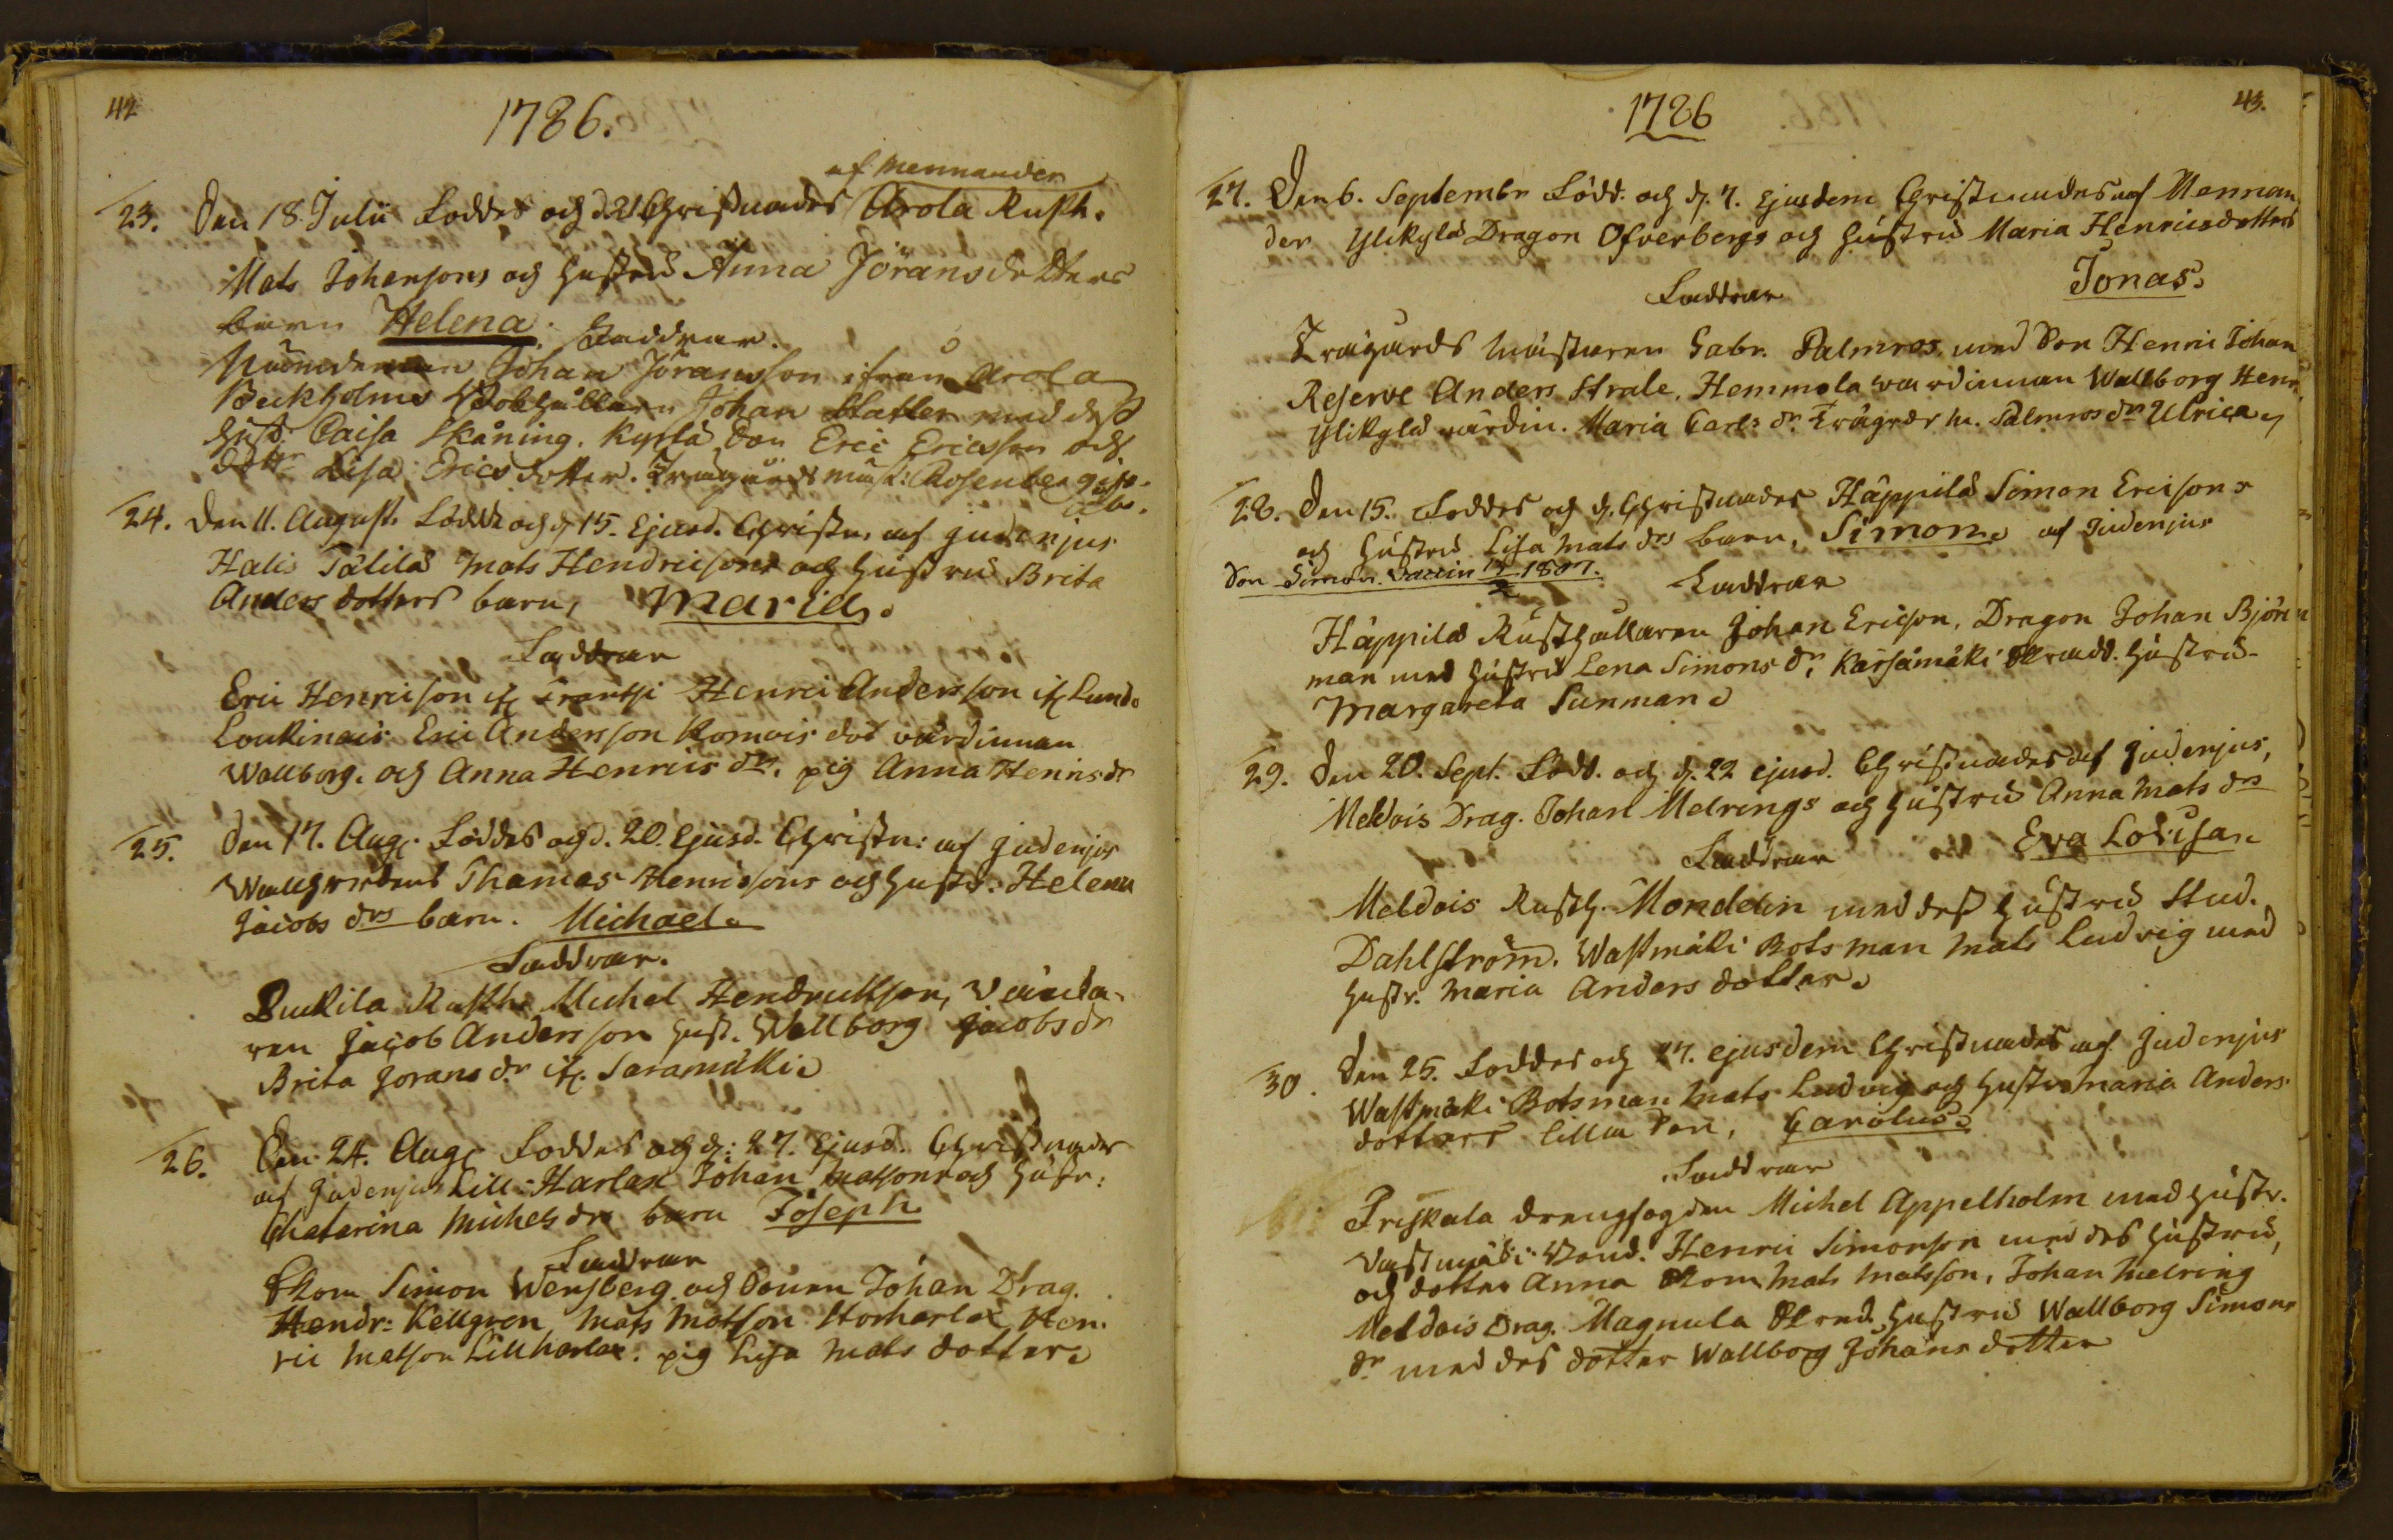 42
1786.
af Mennander
23. Den 18 Julii Föddes och d. 21 Christnades Arola Rusth.
Mats Johansons och hustru Anna Jöransdotters
barn Helena. Faddrar.
Nämndeman Johan Jöransson ifrån Arola
Beckholms Bokhållaren Johan Statler med dess
hust. Caisa Skåning. Kyrilä Son Eric Ericsson och
dottr Lisa Ericsdotter. Trägårds mäst: Rosenberg
24. Den 11. August. Föddes och d. 15. Ejusd. Christn. af Gudenjus
Halis Tälilä Mats Hendricsons och hustru Brita
Anders dotters barn, Maria.
Faddrar
Eric Henricson if. Frantsi Henric Andersson if. Lund.
Loukinais Eric Andersson Komois värdinnan
Wallborg. och Anna Henrics dr. pig Anna Henrics dr
25. Den 17. Aug. Föddes och d. 20. Ejusd. Christn: af Gudenjus
Thomas Henricsons och Hustr. Helena
Jacobs drs barn. Michael.
Faddrar.
Ruckila Rusth. Michel Hendricsson,
ren Jacob Andersson hust. Wallborg Jacobs dr
Brita Jörans dr if. Saramäki
26. Den 24. Aug. Föddes och d: 27. Ejusd. Christnades
af Gudenjus Lill-Harlax Johan Matsons och Hustr:
Chatarina Michels drs barn Joseph.
Faddrar
Skom Simon Wensberg och Sonen Johan Drag.
Hendr: Kellgren Mats Matsson Storharlax Hen-
ric Matsson Lillharlax. pig Lisa Mats dotter.
43.
1786
27. Den 6. Septembr Född. och d. 7. ejusdem Christnades af Mennan
der Ylikylä Dragon Ofverbergs och hustru Maria Henricsdotters
Faddrar Jonas.
Trägårds Mästaren Gabr. Palmros, med Son Henric Johan
Reserve Anders Strale, Hemmola wärdinnan Wallborg Henr.
Ylikylä wärdin. Maria Carls dr. Trägrds m. Palmros dr Ulrica
28. Den 15. Föddes och d. Christnades Häppilä Simon Ericsons
och Hustru Lisa Mats drs barn, Simon. af Gudenjus
Son Simon. Vaccin 1807.
Faddrar
Häppilä Rusthållaren Johan Ericson, Dragon Johan Björn
man med hustru Lena Simons dr, Kärsämäki Skradd. hustru
Margareta Sunman
29. Den 20. Sept. Född. och d. 22 ejusd. Christnades af Gudenjus,
Meldois Drag. Johan Melrings och hustru Anna Mats drs
Faddrar Eva Lovisa.
Meldois Rusth. Mondelin med dess hustru Stud.
Dahlström. Wastmäki Botsman Mats Ludvig med
hustr. Maria Anders dotter.
30. Den 25. Föddes och 27. ejusdem Christnades af Gudenjus
Wastmäki Botsman Mats Ludvig och hustru Maria Anders
dotters lilla Son, Carolus.
Faddrar
Priskala drengfogden Michel Appelholm med hustr.
Vastmäki Bond. Henric Simonson med des hustru,
och dotter Anna Skom Mats Matsson, Johan Melring
Meldois Drag. Magnula Skred. hustru Wallborg Simons
dr med des dotter Wallborg Johans dotter